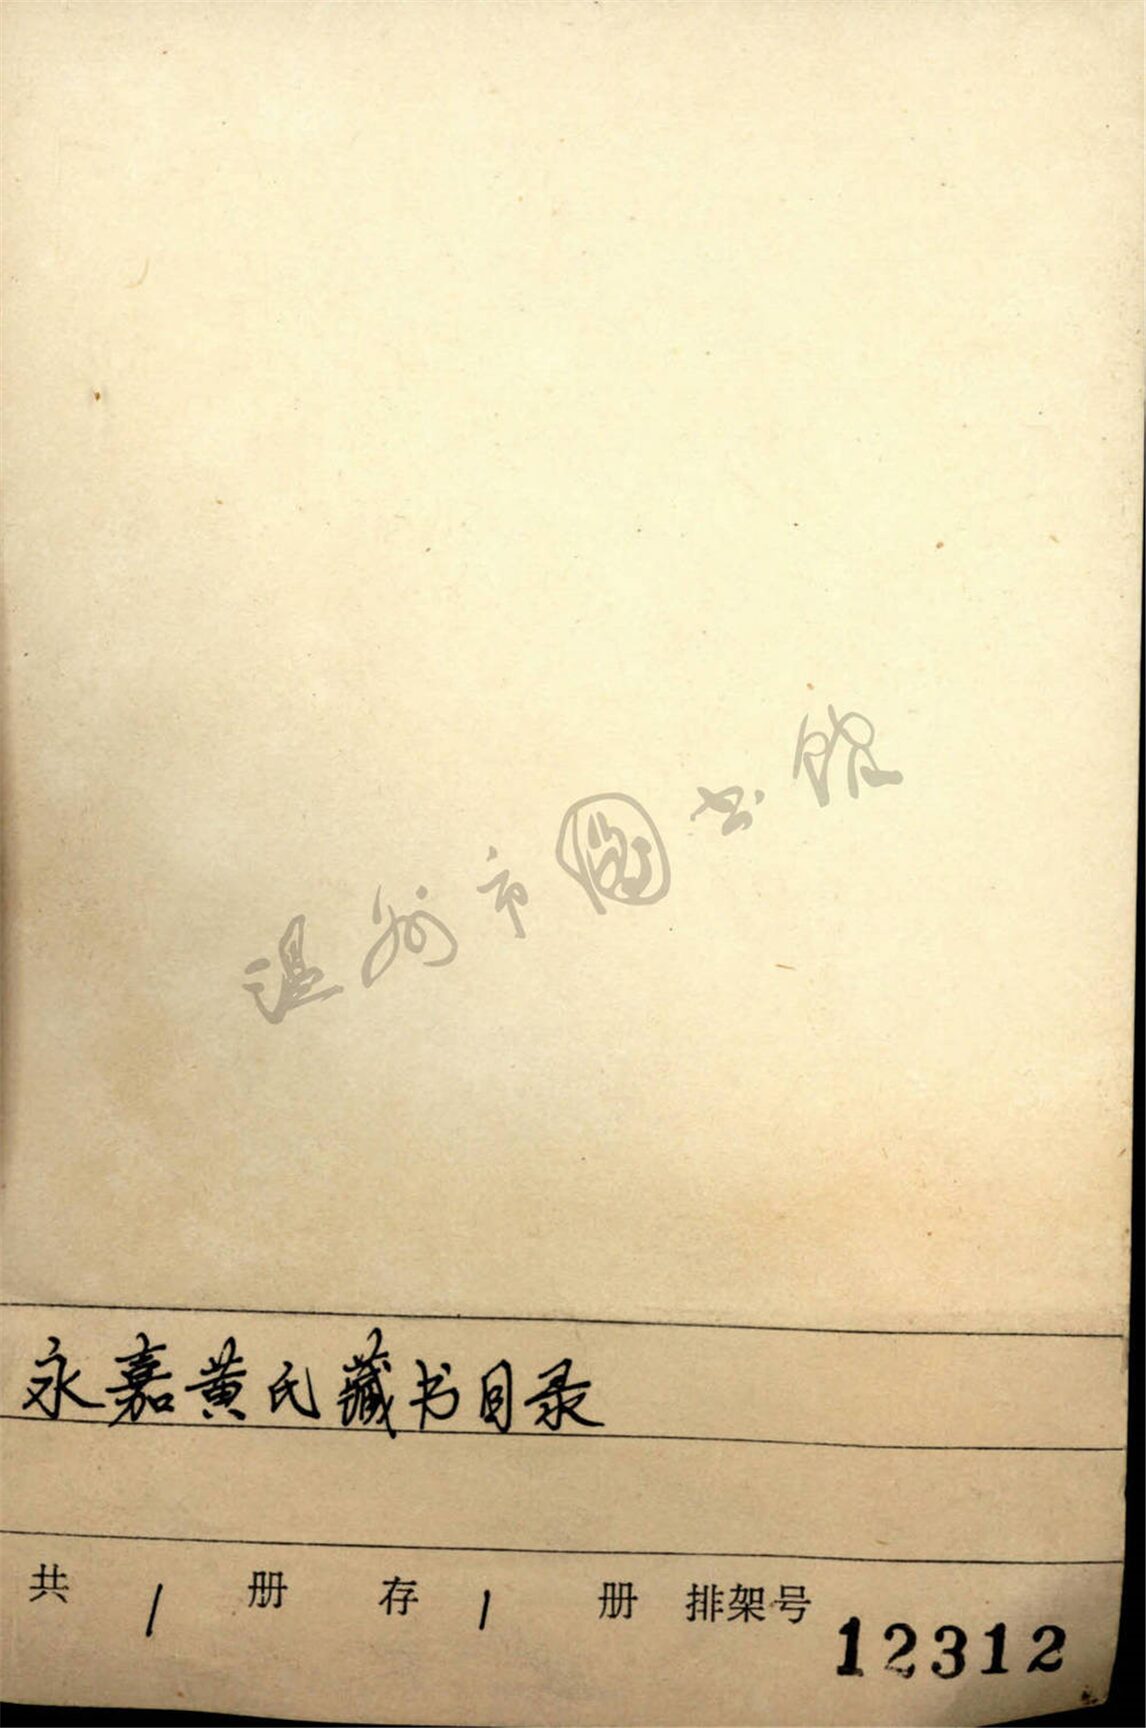 温州市图书馆
永嘉黄氏藏书目录
共 1 册 存 1 册 排架号 12312